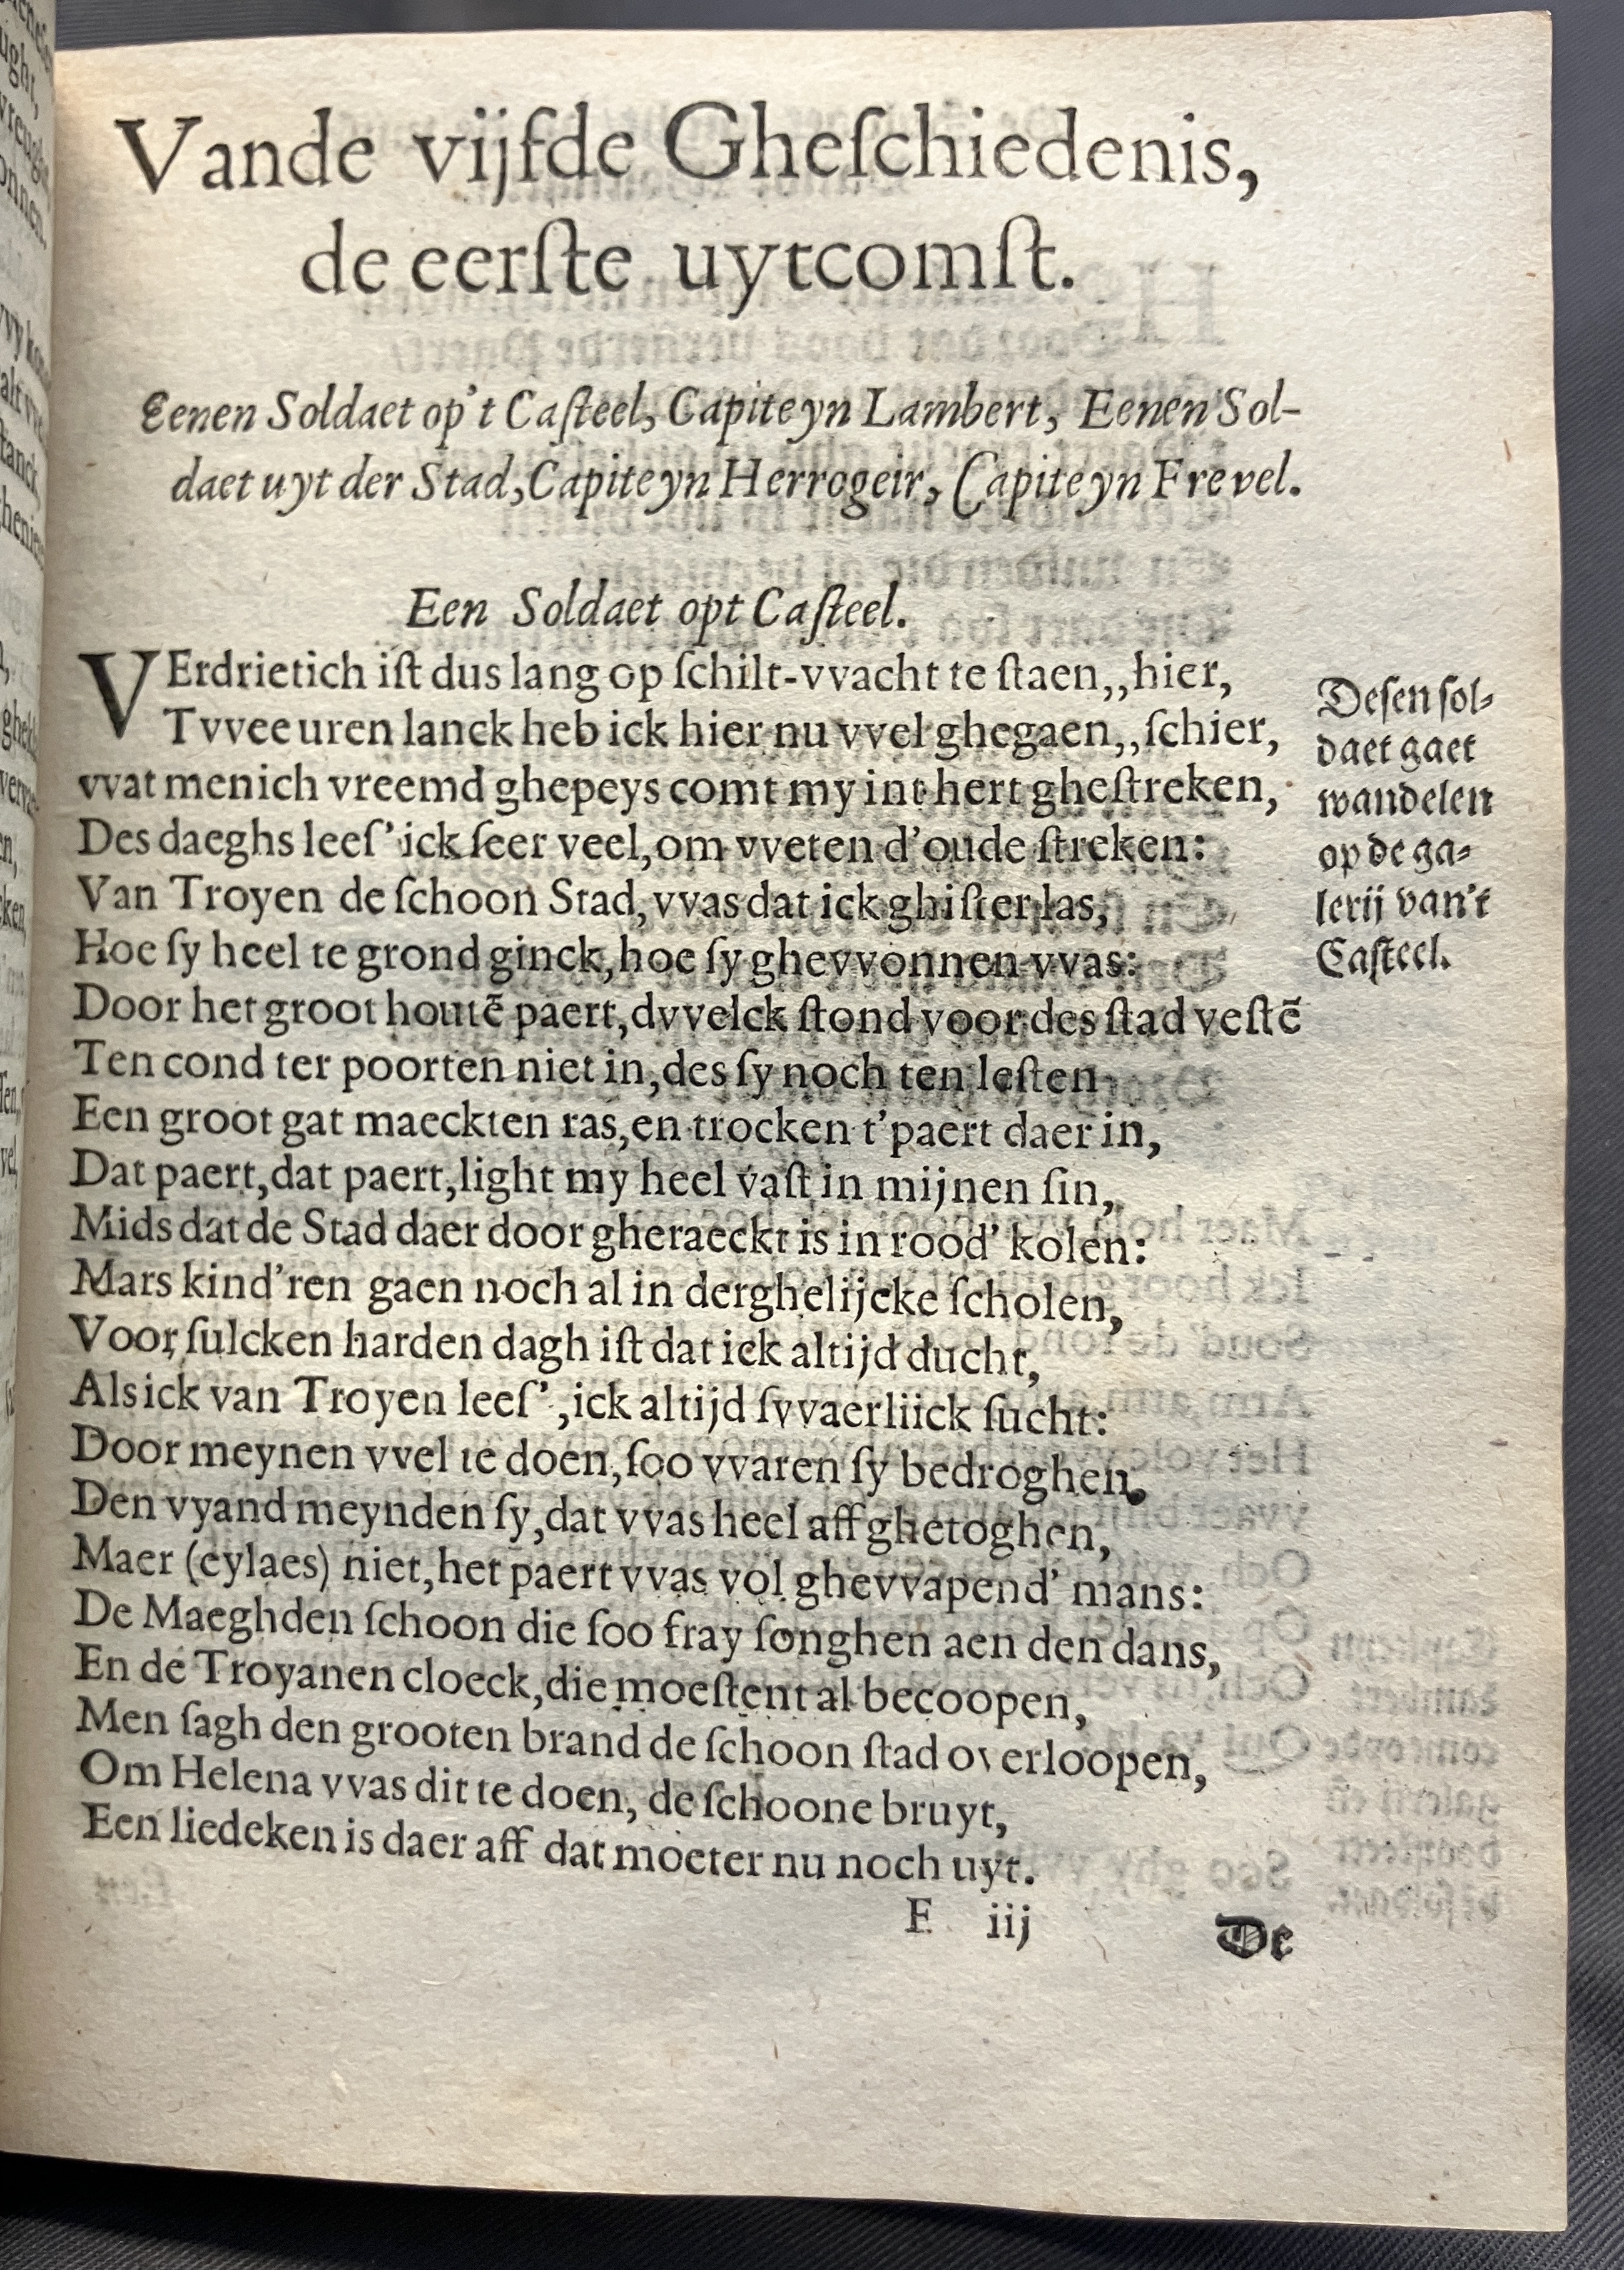 Vande vijfde Gheſchiedenis,
de eerſte uytcomſt.
Eenen Soldaet op't Caſteel, Capiteyn Lambert, Eenen Sol-
daet uyt der Stad, Capiteyn Herrogeir, Capiteyn Frevel.
Een Soldaet opt Caſteel.
VErdrietich iſt dus lang op ſchilt-vvacht te ſtaen,,hier,
Tvvee uren lanck heb ick hier nu vvel ghegaen,,ſchier,
vvat menich vreemd ghepeys comt my int hert gheſtreken,
Des daeghs leeſ' ick ſeer veel, om vveten d'oude ſtreken:
Van Troyen de ſchoon Stad, vvas dat ick ghiſter las,
Hoe ſy heel te grond ginck, hoe ſy ghevvonnen vvas:
Door het groot houtē paert, dvvelck ſtond voor des ſtad veſtē
Ten cond ter poorten niet in, des ſy noch ten leſten
Een groot gat maeckten ras, en trocken t'paert daer in,
Dat paert, dat paert, light my heel vaſt in mijnen ſin,
Mids dat de Stad daer door gheraeckt is in rood' kolen:
Mars kind'ren gaen noch al in derghelijcke ſcholen,
Voor ſulcken harden dagh iſt dat ick altijd ducht,
Als ick van Troyen leeſ', ick altijd ſvvaerliick ſucht:
Door meynen vvel te doen, ſoo vvaren ſy bedroghen,
Den vyand meynden ſy, dat vvas heel aff ghetoghen,
Maer (eylaes) niet, het paert vvas vol ghevvapend' mans:
De Maeghden ſchoon die ſoo fray ſonghen aen den dans,
En de Troyanen cloeck, die moeſtent al becoopen,
Men ſagh den grooten brand de ſchoon ſtad overloopen,
Om Helena vvas dit te doen, de ſchoone bruyt,
Een liedeken is daer aff dat moeter nu noch uyt.
Deſen ſol-
daet gaet
wandelen
op de ga-
lerij van't
Caſteel.
E iij
De